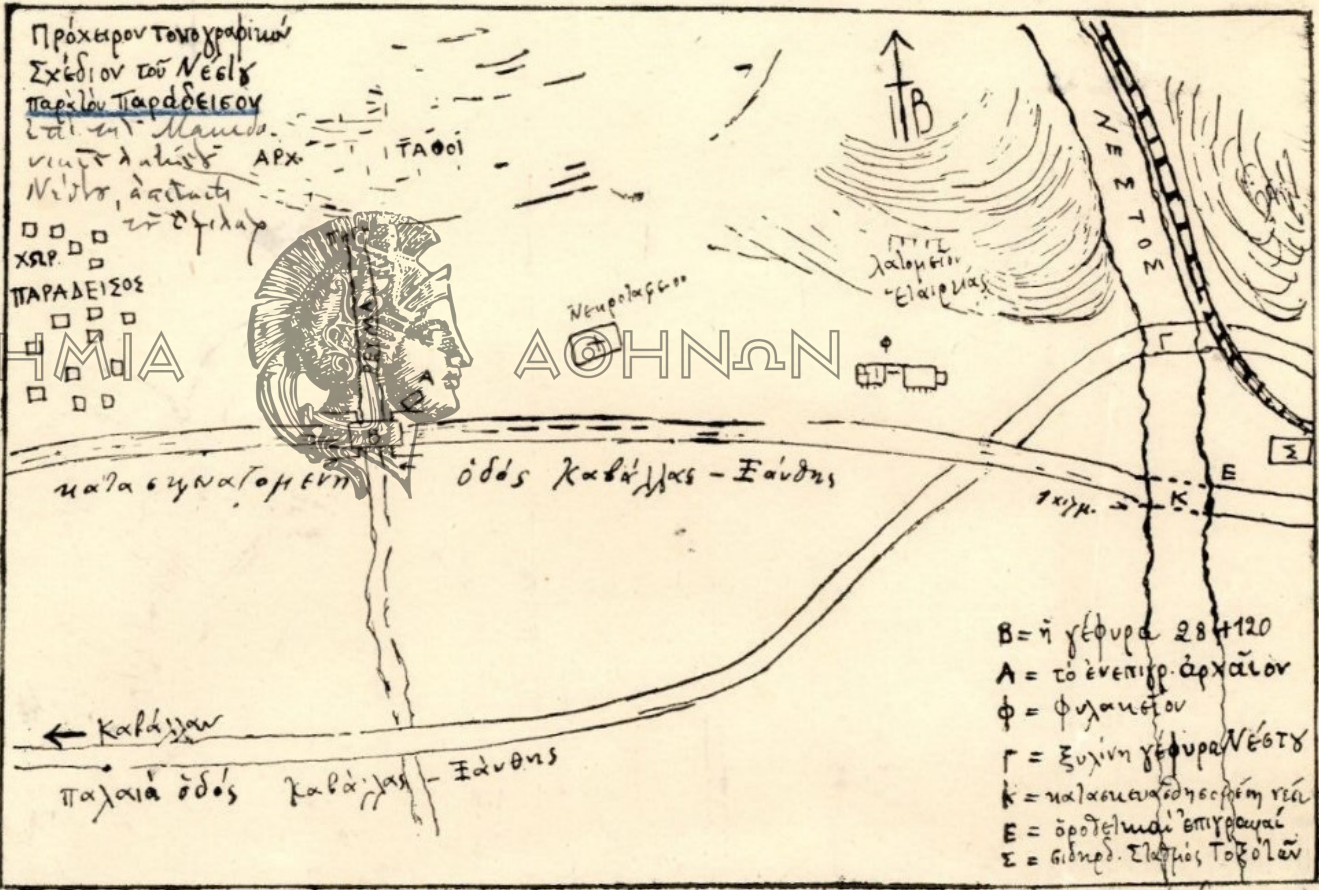 Πρόχειρον τοπογραφικόν
Σχέδιον τοῦ Νέστȣ
παρὰ τὸν Παράδεισον
ἐπὶ τῆς Μακεδο-
νικῆς
Νέστου,
ΑΡΧ. ΤΑΦΟΙ
Β
ΝΕΣΤΟΣ
ΧΩΡ.
ΠΑΡΑΔΕΙΣΟΣ
ΡΕΥΜΑ
Νεκροταφεῖον
λατομεῖον
Ἑταιρείας
ΗΜΙΑ ΑΘΗΝΩΝ
Φ
Γ
Α
Β
Σ
Ε
Κ
1 χιλμ.
κατασκευαζομένη ὁδός Καβάλλας - Ξάνθης
Καβάλλαν
παλαιά ὁδός Καβάλλας - Ξάνθης
Β = ἡ γέφυρα 28+120
Α = τὸ ἐνεπιγρ. ἀρχαῖον
Φ = Φυλακεῖον
Γ = ξυλίνη γέφυρα Νέστȣ
Κ = κατασκευασθησομένη νέα
Ε = ὁροθετικαί ἐπιγραφαί
Σ = σιδηρδ. Σταθμός Τοξοτῶν